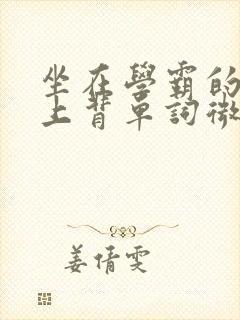 坐在學霸的
上背單詞微
姜倩雯